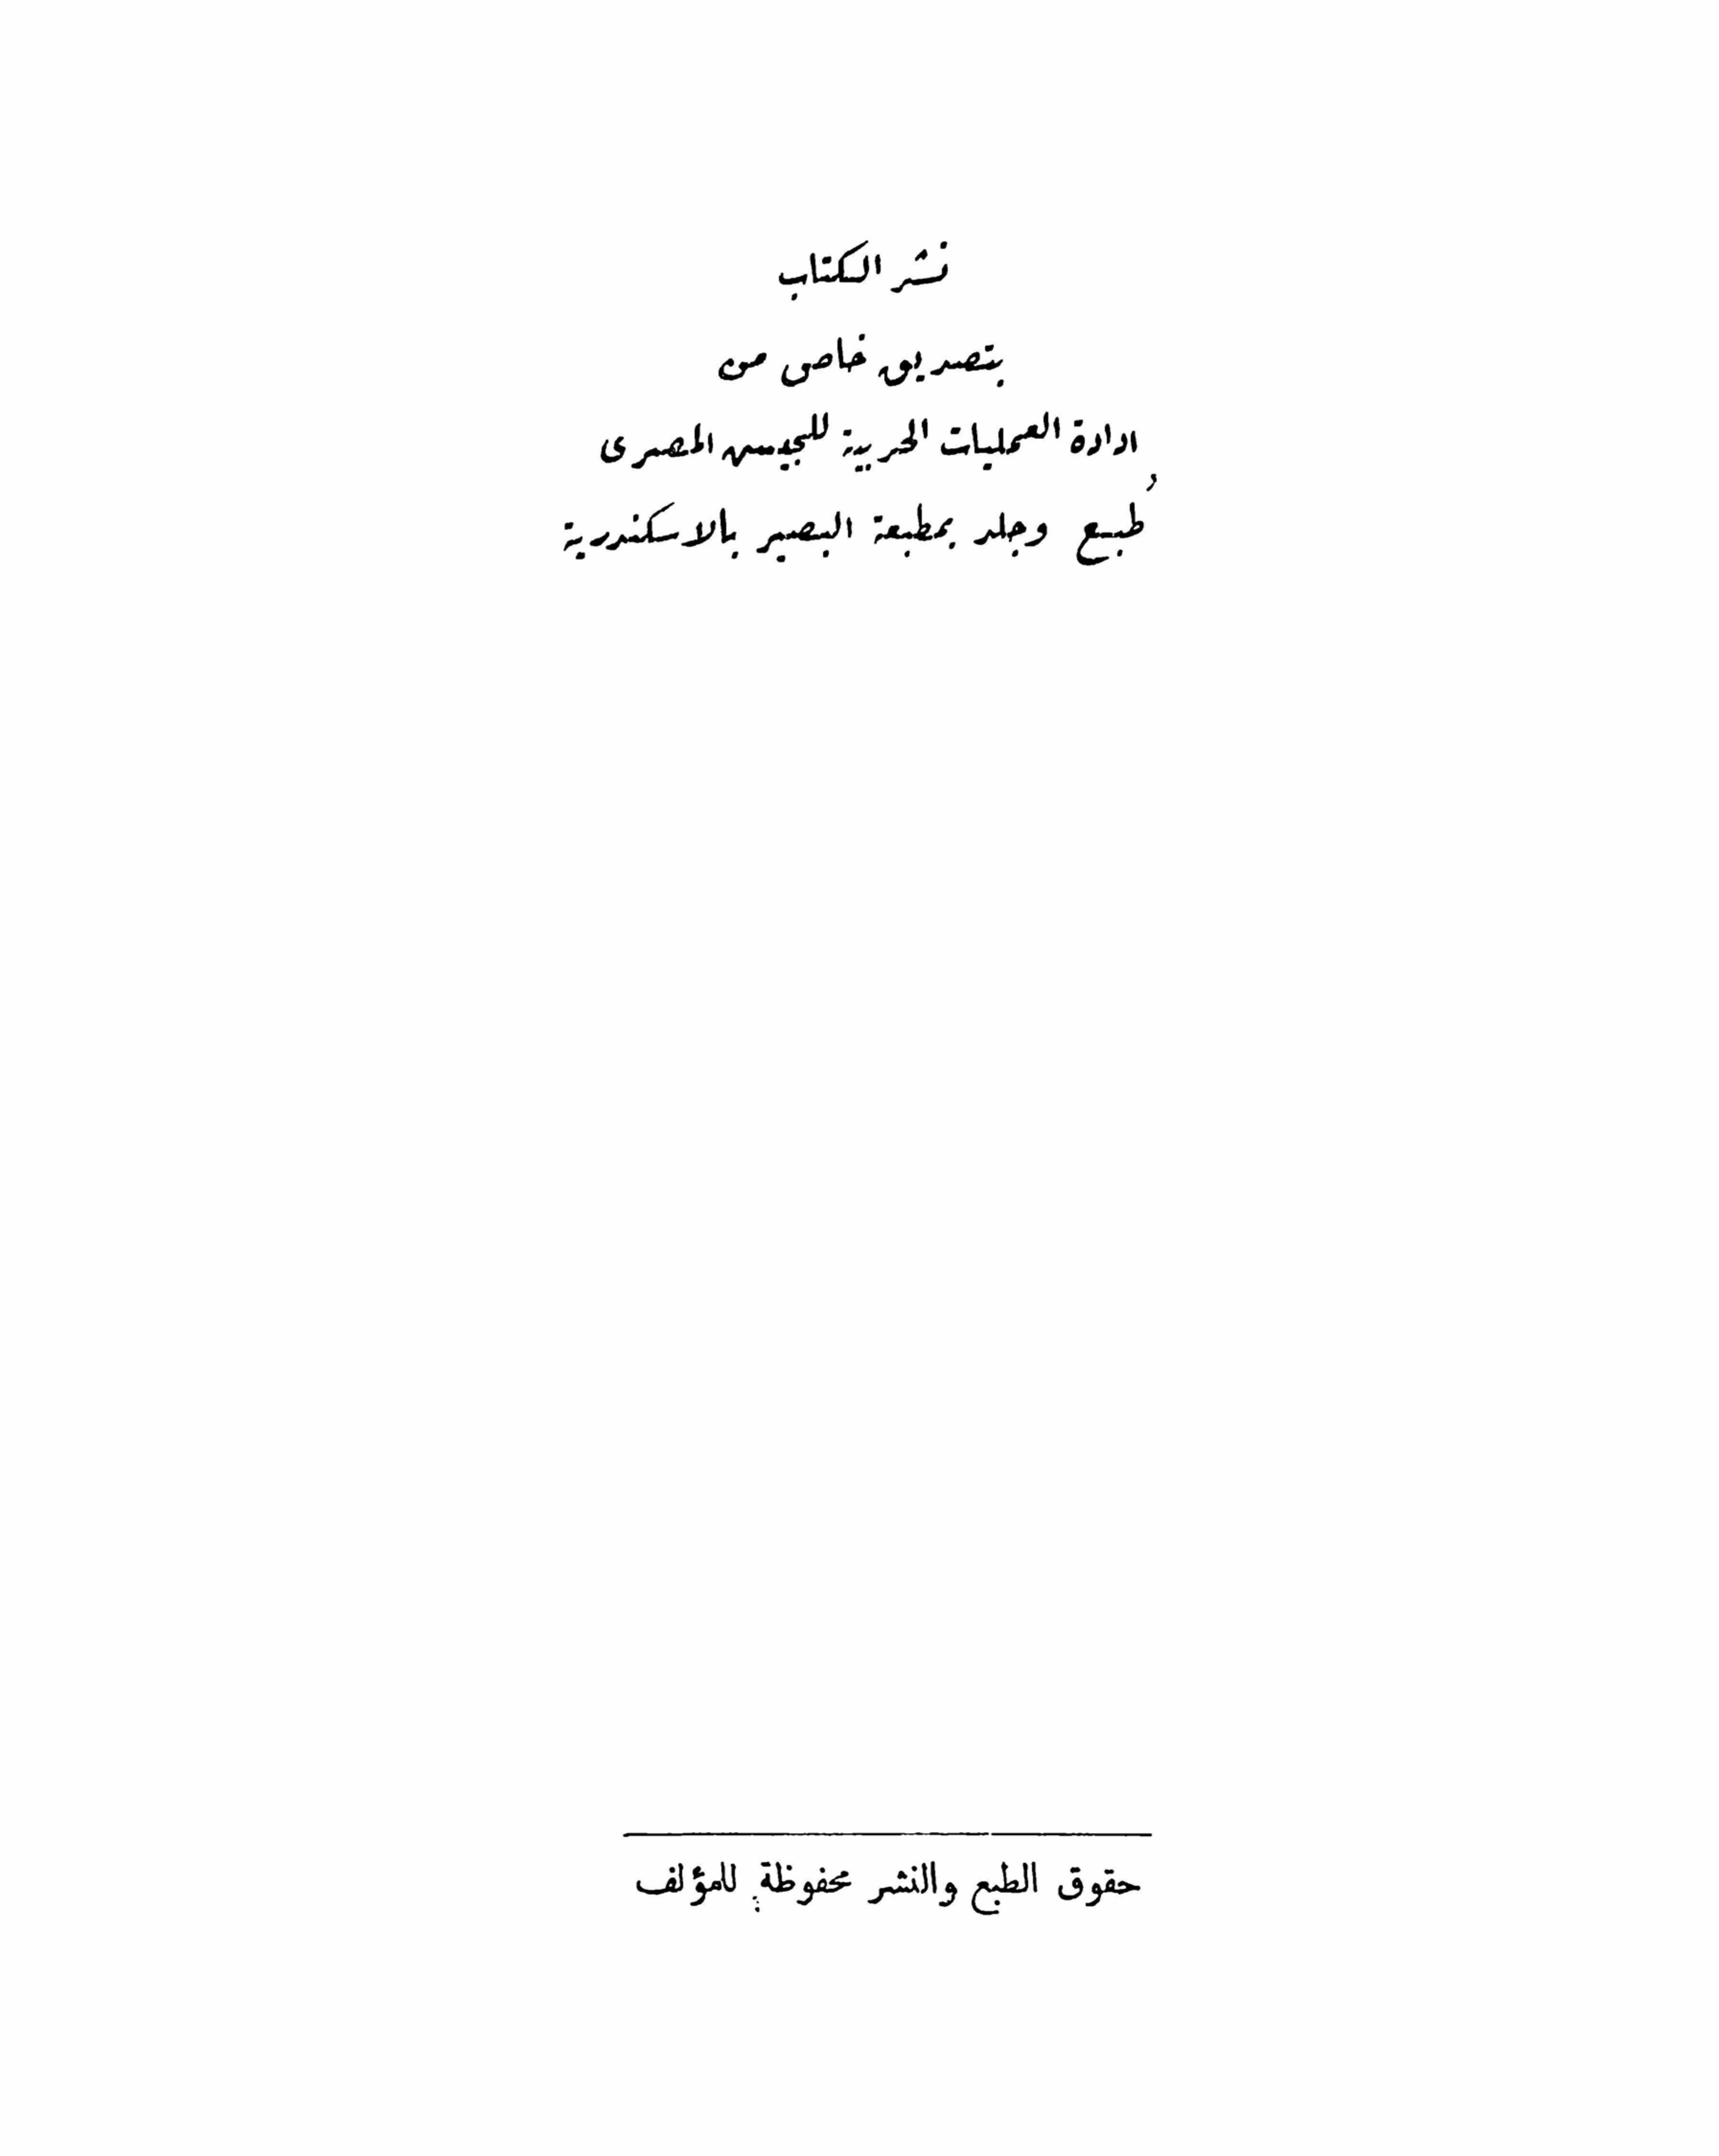 نشر الكتاب
بتصديق خاص من
ادارة العمليات الحربية للجيش المصرى
طُبع وجلد بمطبعة البصير بالاسكندرية
حقوق الطبع والنشر محفوظة للمؤلف